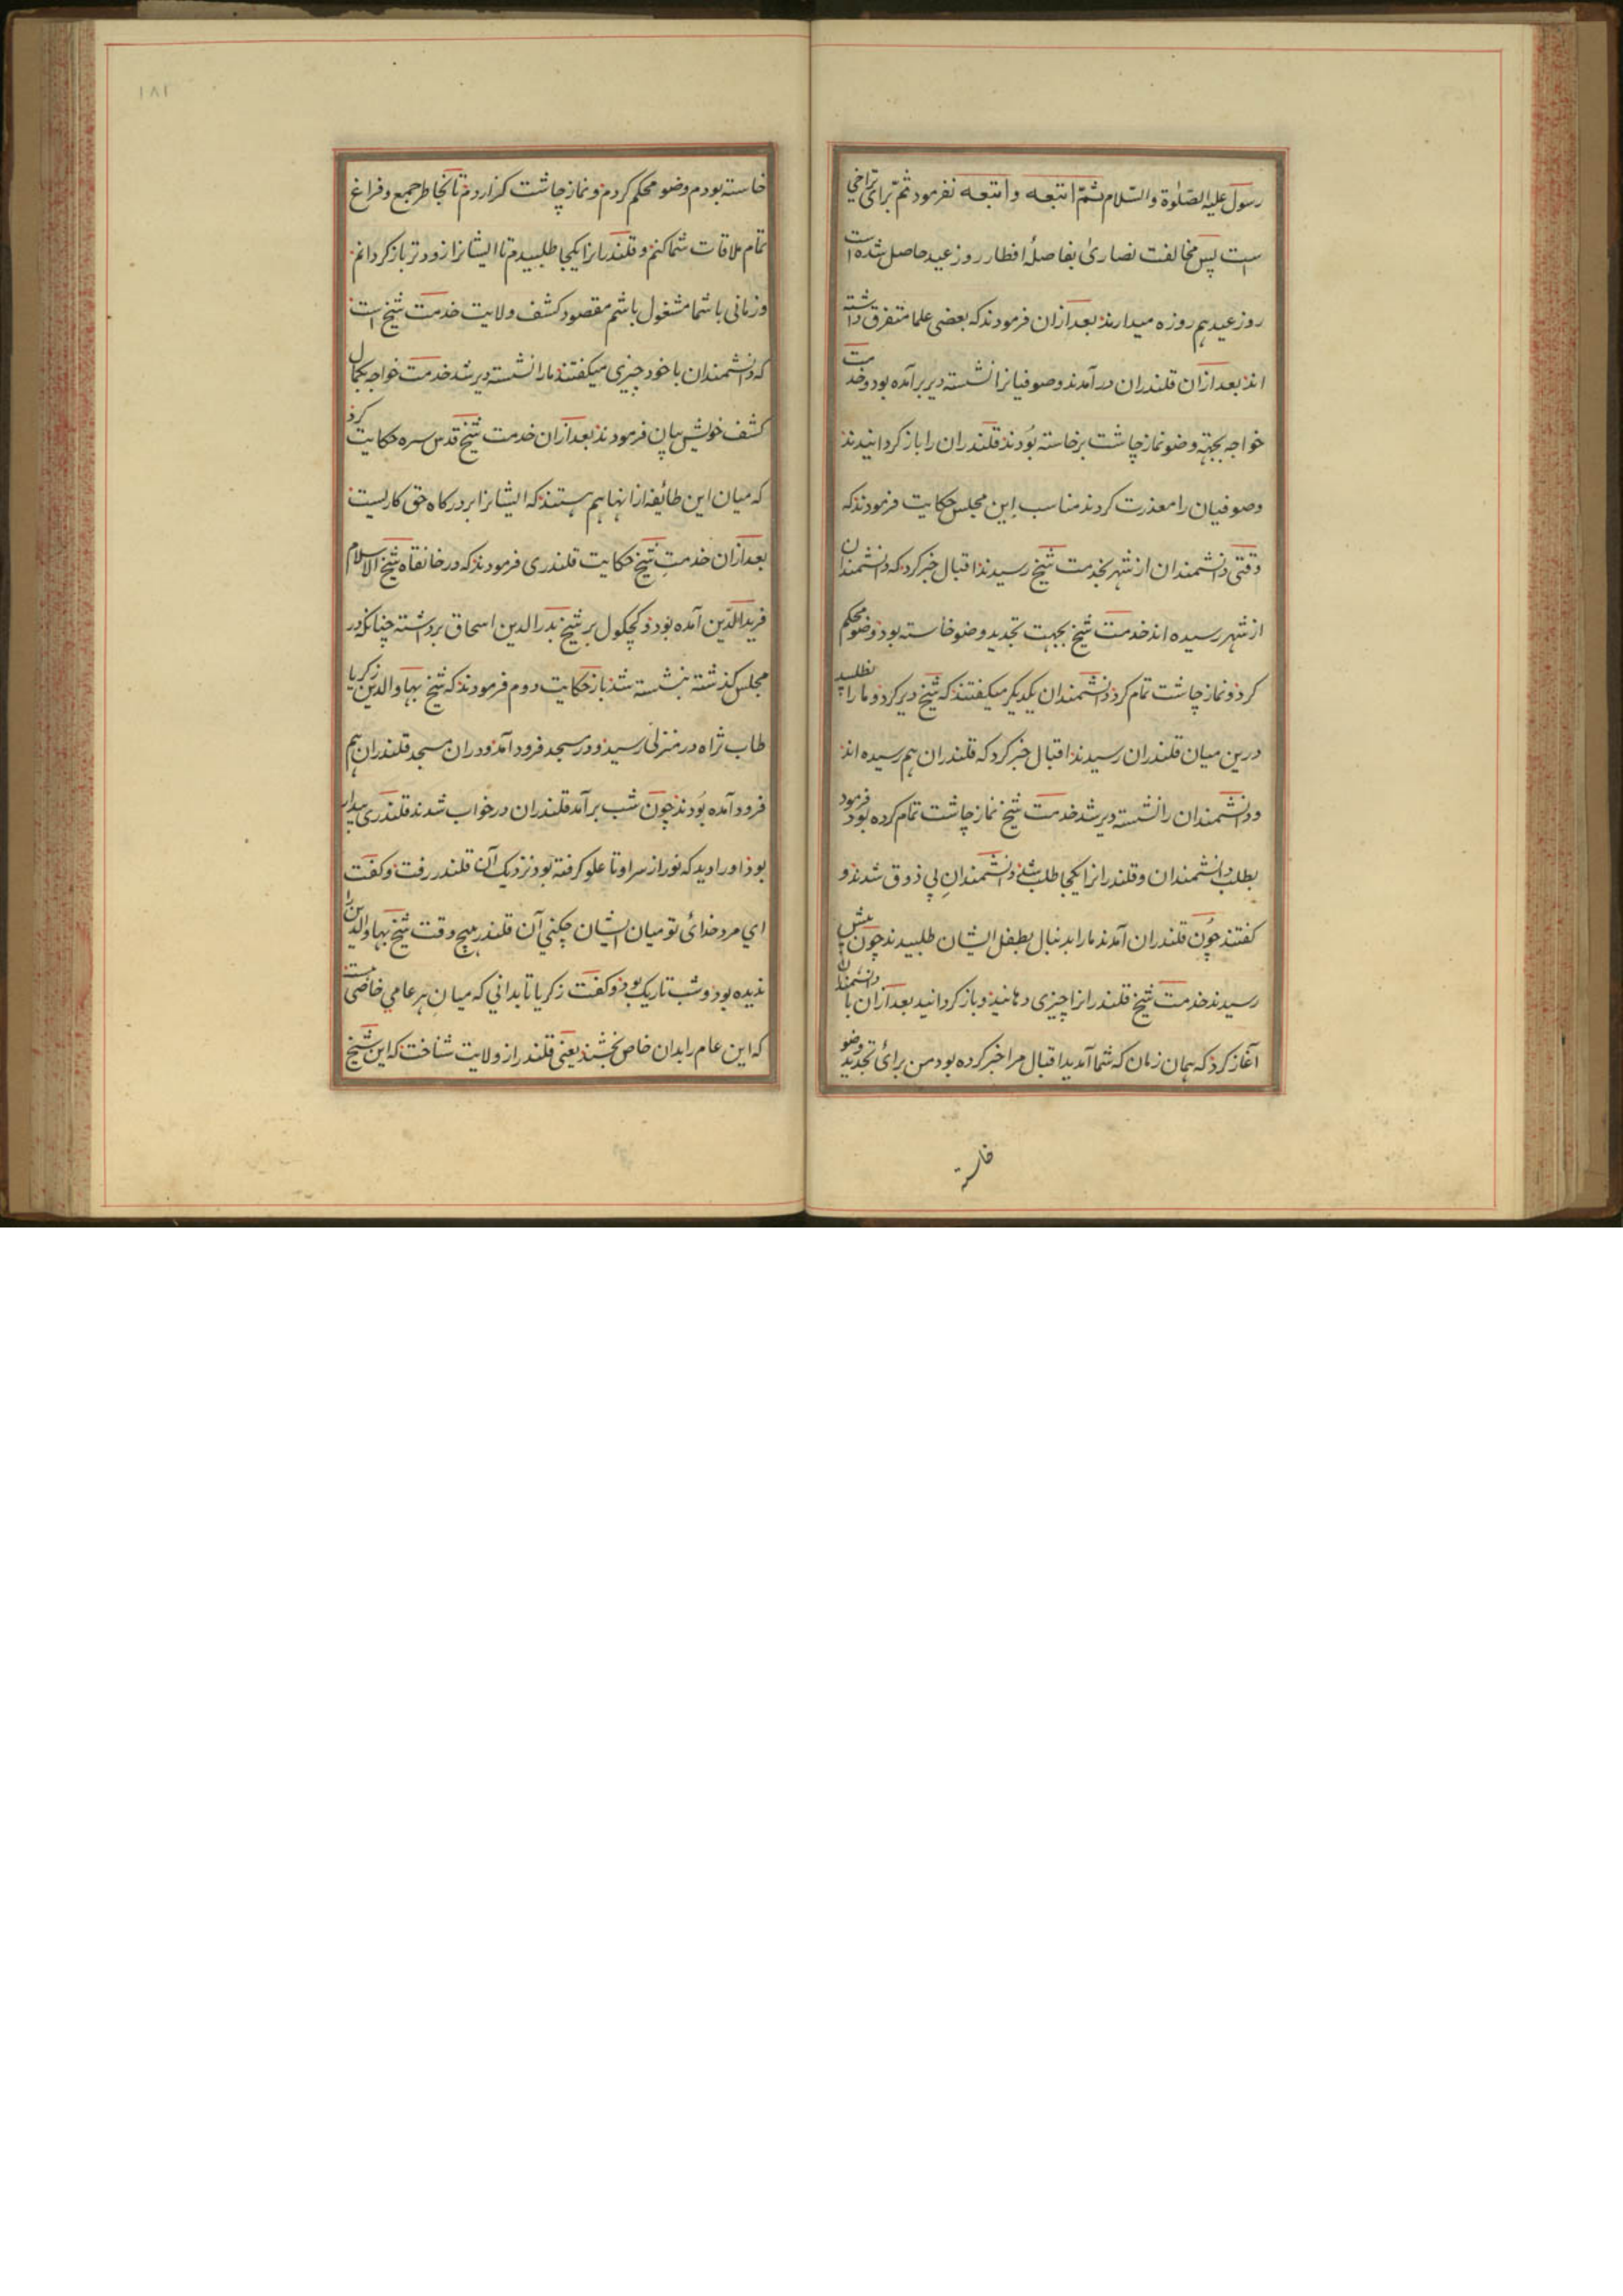 رسول علیه الصلوٰة والسّلام ثمّ اتبعه و اتبعه نفرمود ثمّ برای تراخی
ست پس مخالفت نصاریٰ بفاصلهٔ افطار روز عید حاصل شده است
روز عید هم روزه میدارند بعدازان فرمودند که بعضی علما متفرق داشته
اند بعدازان قلندران در آمدند و صوفیانرا نشسته دیر برآمده بود و خدمت
خواجه بجهة وضو نماز چاشت برخاسته بودند قلندران را باز کردانیدند
وصوفیان را معذرت کردند مناسب این مجلس حکایت فرمودند که
وقتی دانشمندان از شهر بخدمت شیخ رسیدند اقبال خبر کرد که دانشمندان
از شهر رسیده اند خدمت شیخ بجهت تجدید وضو خاسته بود وضو محکم
کرد و نماز چاشت تمام کرد دانشمندان یکدیکر میکفتند که شیخ دیر کرد و ما را نطلبید
درین میان قلندران رسیدند اقبال خبر کرد که قلندران هم رسیده اند
ودانشمندان را نشسته دیر شد خدمت شیخ نماز چاشت تمام کرده بود فرمود
بطلب دانشمندان و قلندرانرا یکجا طلب شد دانشمندان بی ذوق شدند و
کفتند چون قلندران آمدند ما را بدنبال بطفل ایشان طلبیدند چون پیش
رسیدند خدمت شیخ قلندرانرا چیزی دهانید و باز کردانید بعدازان با دانشمندان
آغاز کرد که همان زمان که شما آمدید اقبال مرا خبر کرده بود من برای تجدید وضو
خاسته
۱۸۲
خاسته بودم وضو محکم کردم و نماز چاشت کزاردم تا بخاطر جمع و فراغ
تمام ملاقات شما کنم و قلندرانرا یکجا طلبیدم تا ایشانرا زودتر باز کردانم
وزمانی با شما مشغول باشم مقصود کشف ولایت خدمت شیخ است
که دانشمندان با خود چیزی میکفتند مارا نشسته دیر شد خدمت خواجه بکمال
کشف خویش بیان فرمودند بعدازان خدمت شیخ قدس سره حکایت کرد
که میان این طائفه از انها هم هستند که ایشانرا بر درکاه حق کاریست
بعدازان خدمتِ شیخ حکایت قلندری فرمودند که در خانقاه شیخ الاسلام
فرید الدّین آمده بود و کچکول بر شیخ بدر الدین اسحاق برداشته چنانکه در
مجلس کذشته نبشته شد باز حکایت دوم فرمودند که شیخ بهاو الدین زکریا
طاب ثراه در منزلی رسید و در مسجد فرود آمد و دران مسجد قلندران هم
فرود آمده بودند چون شب برآمد قلندران در خواب شدند قلندری بیدار
بود او را دید که نور از سر او تا علو کرفته بود نزدیک آن قلندر رفت و کفت
ای مرد خدائی تو میان ایشان چکنی آن قلندر هیچ وقت شیخ بهاو الدین را
ندیده بود و شب تاریک بود و کفت زکریا تا بدانی که میانِ هر عامی خاصی است
که این عام را بدان خاص بخشند یعنی قلندر از ولایت شناخت که این شیخ